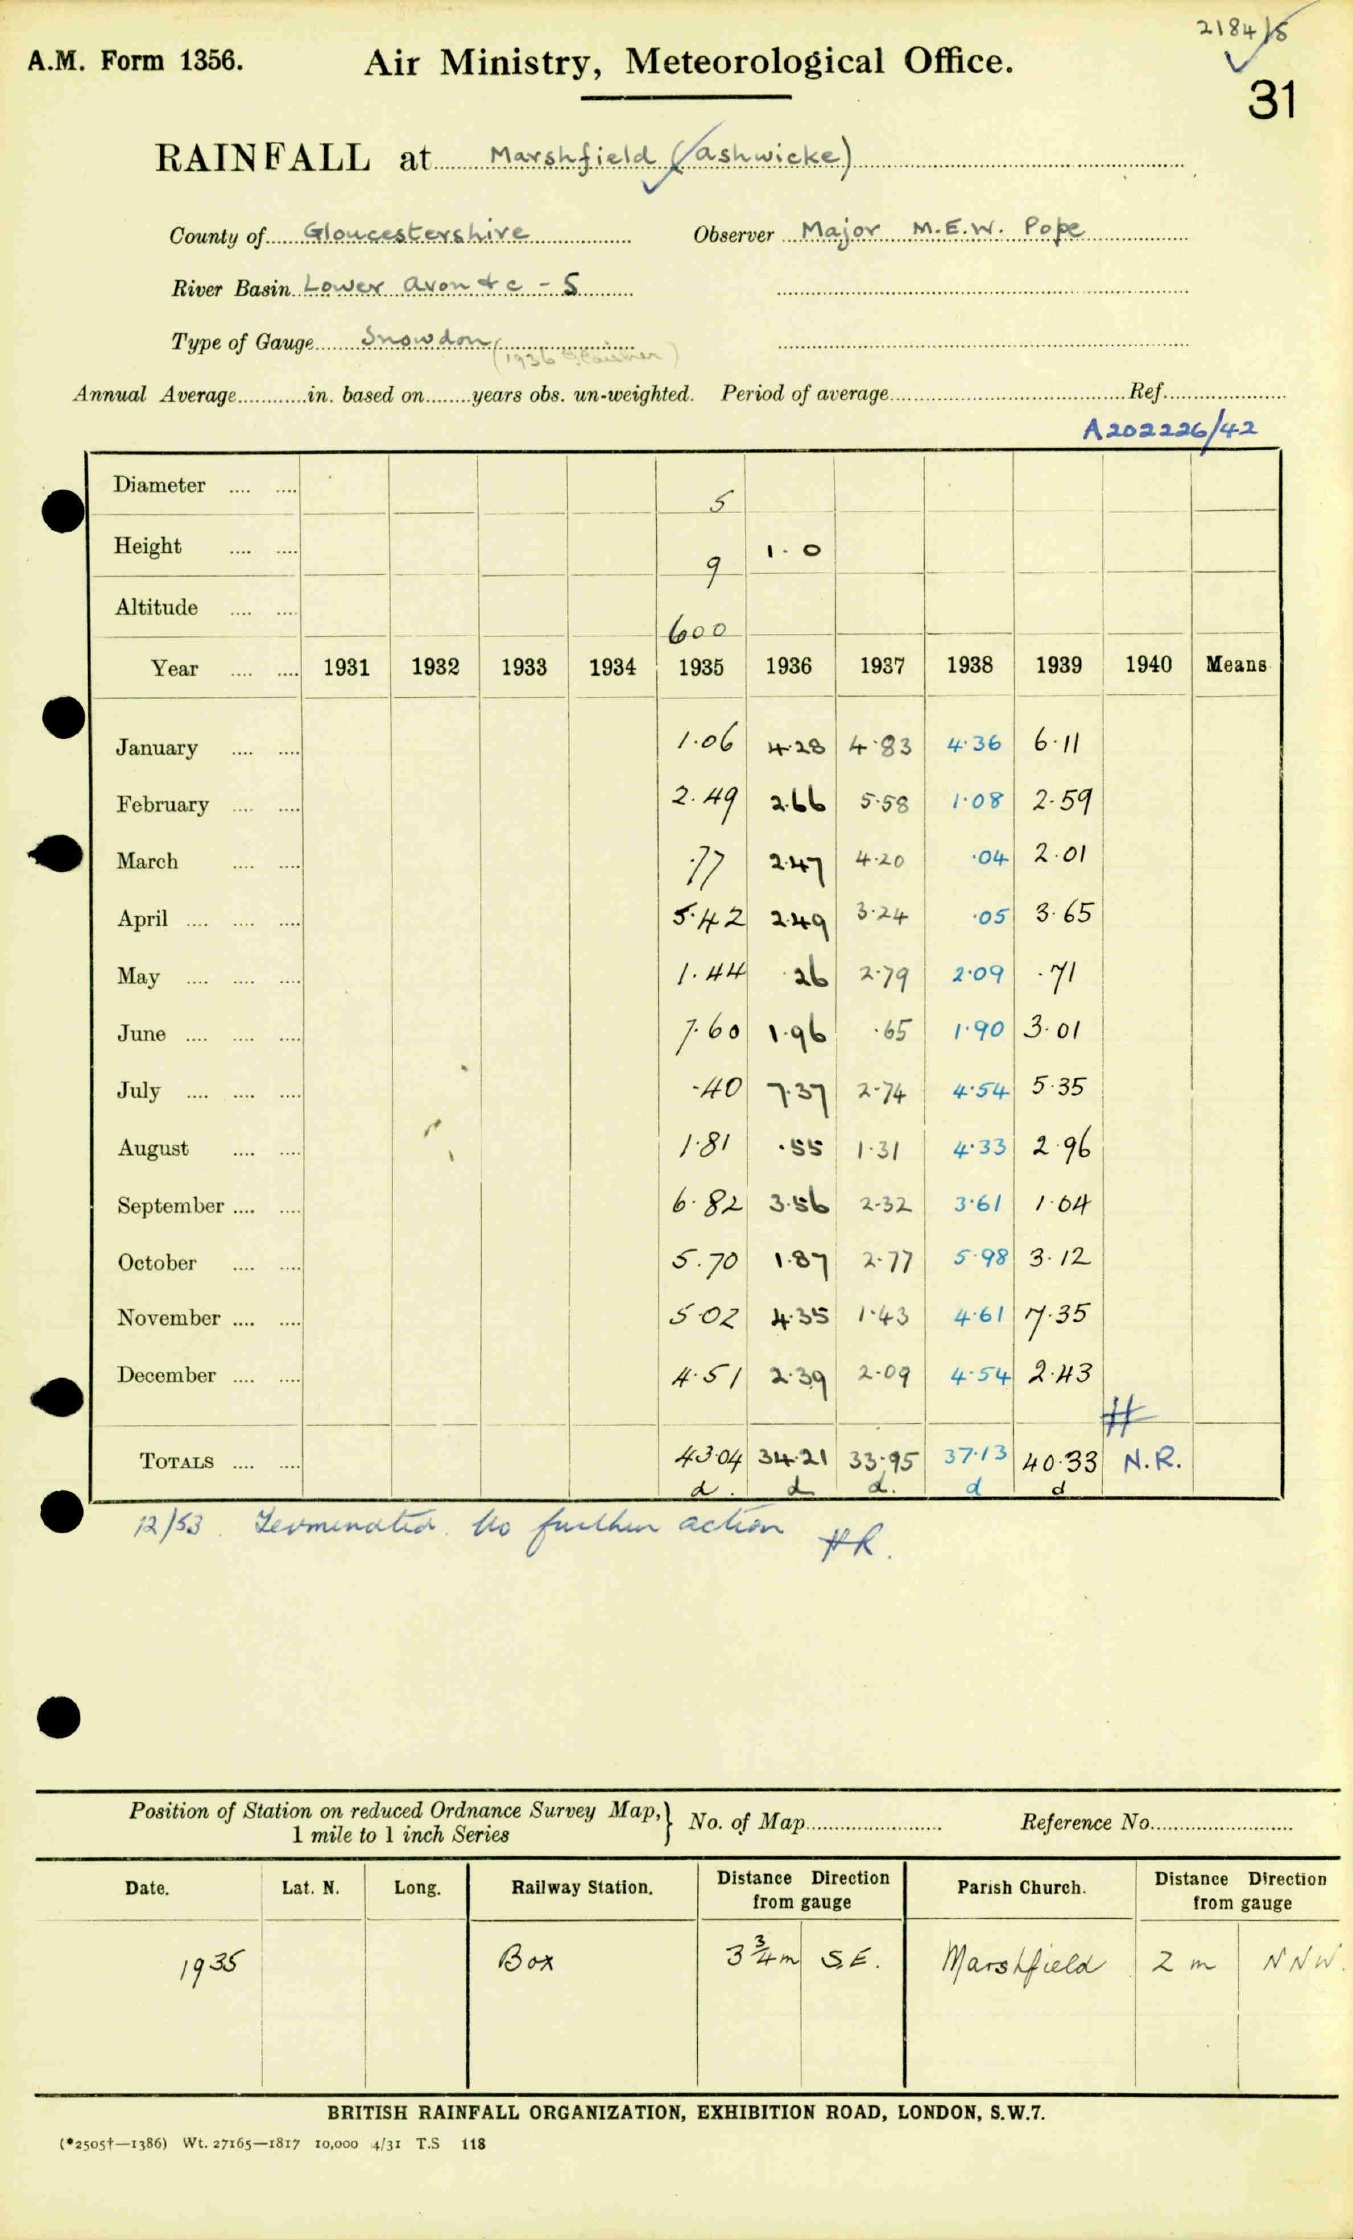 2184/5
A.M. Form 1356. Air Ministry, Meteorological Office.
31
RAINFALL at Marshfield (Ashwicke)
County of Gloucestershire Observer Major M.E.W. Pope
River Basin Lower Avon &c - S
Type of Gauge Snowdon (1936 Glaisher)
Annual Average............in. based on........years obs. un-weighted. Period of average........................Ref.....................
A202226/42
Diameter .... .... 5
Height .... .... 9 1.0
Altitude .... .... 600
Year .... .... 1931 1932 1933 1934 1935 1936 1937 1938 1939 1940 Means
January .... .... 1.06 4.28 4.83 4.36 6.11
February .... .... 2.49 2.66 5.58 1.08 2.59
March .... .... .77 2.47 4.20 .04 2.01
April .... .... .... 5.42 2.49 3.24 .05 3.65
May .... .... .... 1.44 .26 2.79 2.09 .71
June .... .... .... 7.60 1.96 .65 1.90 3.01
July .... .... .... .40 7.37 2.74 4.54 5.35
August .... .... 1.81 .55 1.31 4.33 2.96
September .... .... 6.82 3.56 2.32 3.61 1.04
October .... .... 5.70 1.87 2.77 5.98 3.12
November .... .... 5.02 4.35 1.43 4.61 7.35
December .... .... 4.51 2.39 2.09 4.54 2.43
TOTALS .... .... 43.04 34.21 33.95 37.13 40.33 N.R.
d. d d. d d
12/53. Terminated. No further action HR.
Position of Station on reduced Ordnance Survey Map,} No. of Map........................ Reference No.........................
1 mile to 1 inch Series
Date. Lat. N. Long. Railway Station. Distance Direction from gauge Parish Church. Distance Direction from gauge
1935 Box 3 3/4 m S.E. Marshfield 2 m NNW.
BRITISH RAINFALL ORGANIZATION, EXHIBITION ROAD, LONDON, S.W.7.
(*2505†—1386) Wt. 27165—1817 10,000 4/31 T.S 118